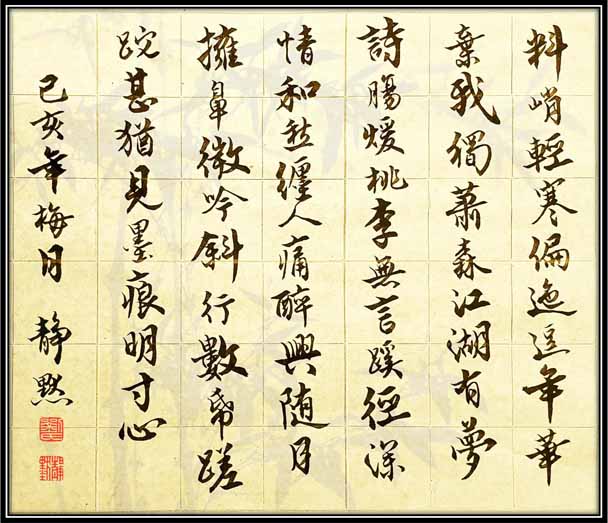 料峭輕寒偏迤逗年華
棄我獨蕭森江湖有夢
詩腸煖桃李無言蹊徑深
情和愁纏人痛醉興隨月
擁鼻微吟斜行數帋蹉
跎甚猶見墨痕明寸心
己亥年梅月 靜默